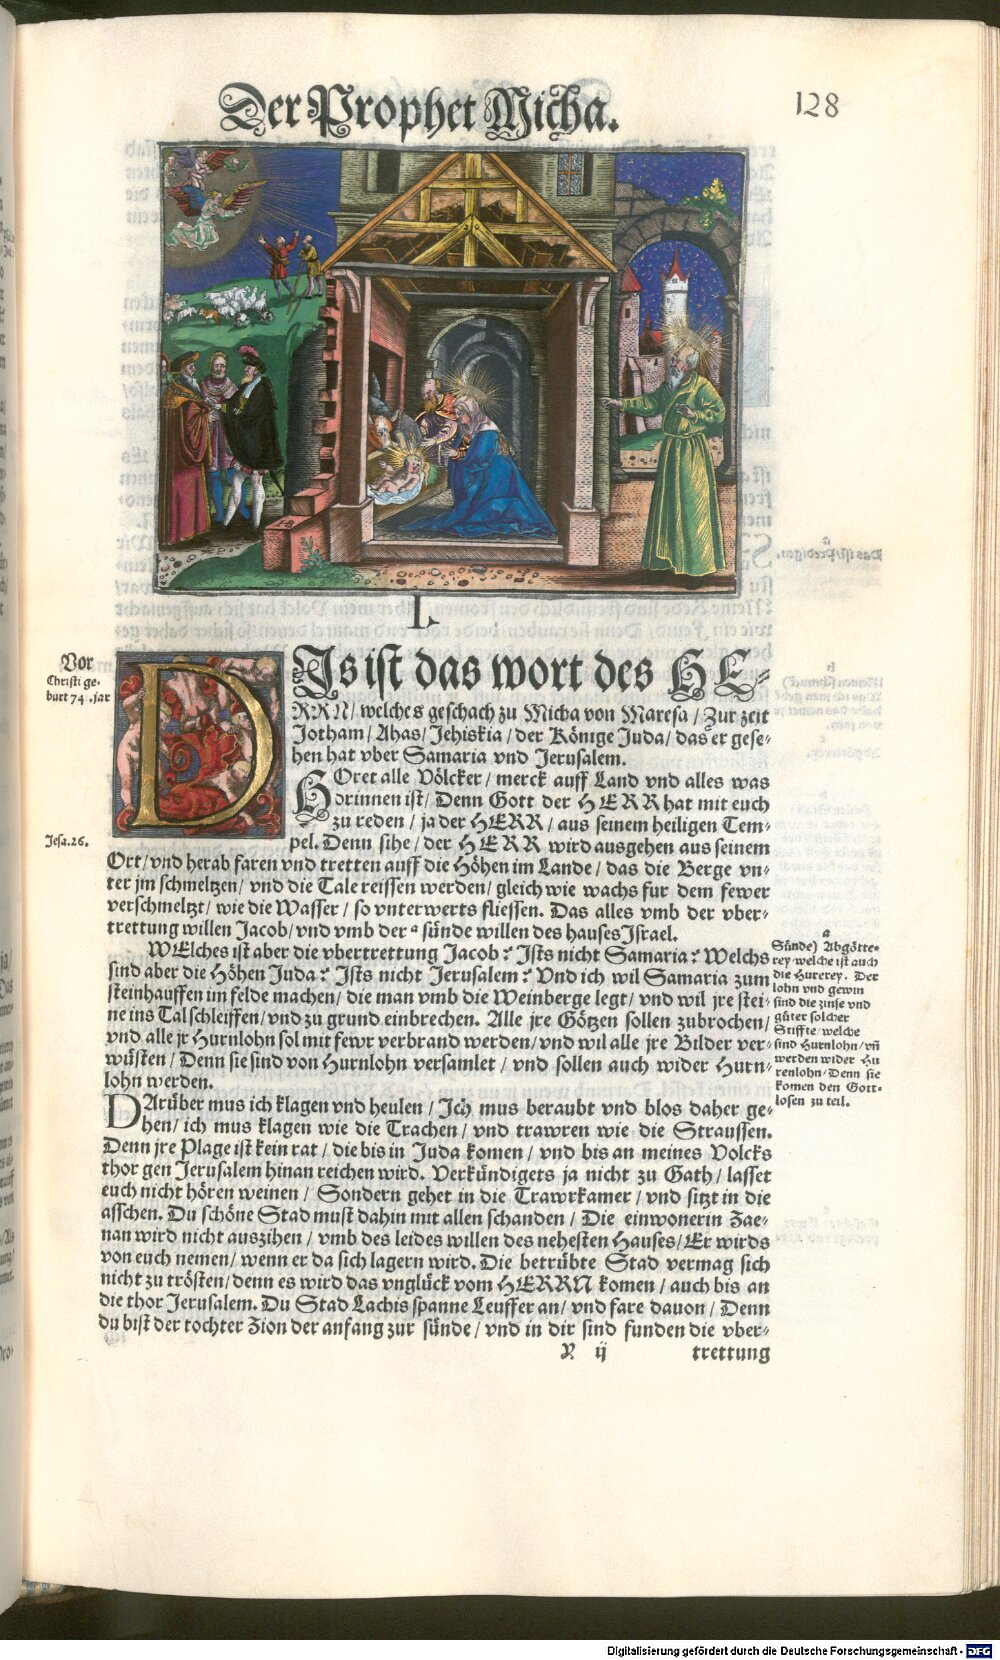 Der Prophet Micha.
128
HB
I.
Vor
Christi ge-
burt 74.jar
DIs ist das wort des HE-
RRN/ welches geschach zu Micha von Maresa / Zur zeit
Jotham / Ahas/ Jehiskia / der Könige Juda / das er gese-
hen hat vber Samaria vnd Jerusalem.
HOret alle Völcker / merck auff Land vnd alles was
dorinnen ist/ Denn Gott der HERR hat mit euch
zu reden / ja der HERR / aus seinem heiligen Tem-
pel. Denn sihe / der HERR wird ausgehen aus seinem
Jesa.26.
Ort/ vnd herab faren vnd tretten auff die Höhen im Lande / das die Berge vn-
ter jm schmeltzen / vnd die Tale reissen werden / gleich wie wachs fur dem fewer
verschmeltzt / wie die Wasser / so vnterwerts fliessen. Das alles vmb der vber-
trettung willen Jacob/ vnd vmb der a sünde willen des hauses Israel.
WElches ist aber die vbertrettung Jacob? Ists nicht Samaria? Welchs
sind aber die Höhen Juda? Ists nicht Jerusalem? Vnd ich wil Samaria zum
steinhauffen im felde machen / die man vmb die Weinberge legt / vnd wil jre stei-
ne ins Tal schleiffen/ vnd zu grund einbrechen. Alle jre Götzen sollen zubrochen/
vnd alle jr Hurnlohn sol mit fewr verbrand werden/ vnd wil alle jre Bilder ver-
wüsten / Denn sie sind von Hurnlohn versamlet / vnd sollen auch wider Hurn-
lohn werden.
a
Sünde) Abgötte-
rey welche ist auch
die Hurerey. Der
lohn vnd gewin
sind die zinse vnd
güter solcher
Stiffte/ welche
sind Hurnlohn/ vñ
werden wider Hu
renlohn/ Denn sie
komen den Gott-
losen zu teil.
DArüber mus ich klagen vnd heulen / Ich mus beraubt vnd blos daher ge-
hen/ ich mus klagen wie die Trachen / vnd trawren wie die Straussen.
Denn jre Plage ist kein rat / die bis in Juda komen / vnd bis an meines Volcks
thor gen Jerusalem hinan reichen wird. Verkündigets ja nicht zu Gath / lasset
euch nicht hören weinen / Sondern gehet in die Trawrkamer / vnd sitzt in die
asschen. Du schöne Stad must dahin mit allen schanden / Die einwonerin Zae-
nan wird nicht auszihen / vmb des leides willen des nehesten Hauses/ Er wirds
von euch nemen/ wenn er da sich lagern wird. Die betrübte Stad vermag sich
nicht zu trösten/ denn es wird das vnglück vom HERRN komen / auch bis an
die thor Jerusalem. Du Stad Lachis spanne Leuffer an/ vnd fare dauon / Denn
du bist der tochter Zion der anfang zur sünde / vnd in dir sind funden die vber-
R ij trettung
Digitalisierung gefördert durch die Deutsche Forschungsgemeinschaft - DFG